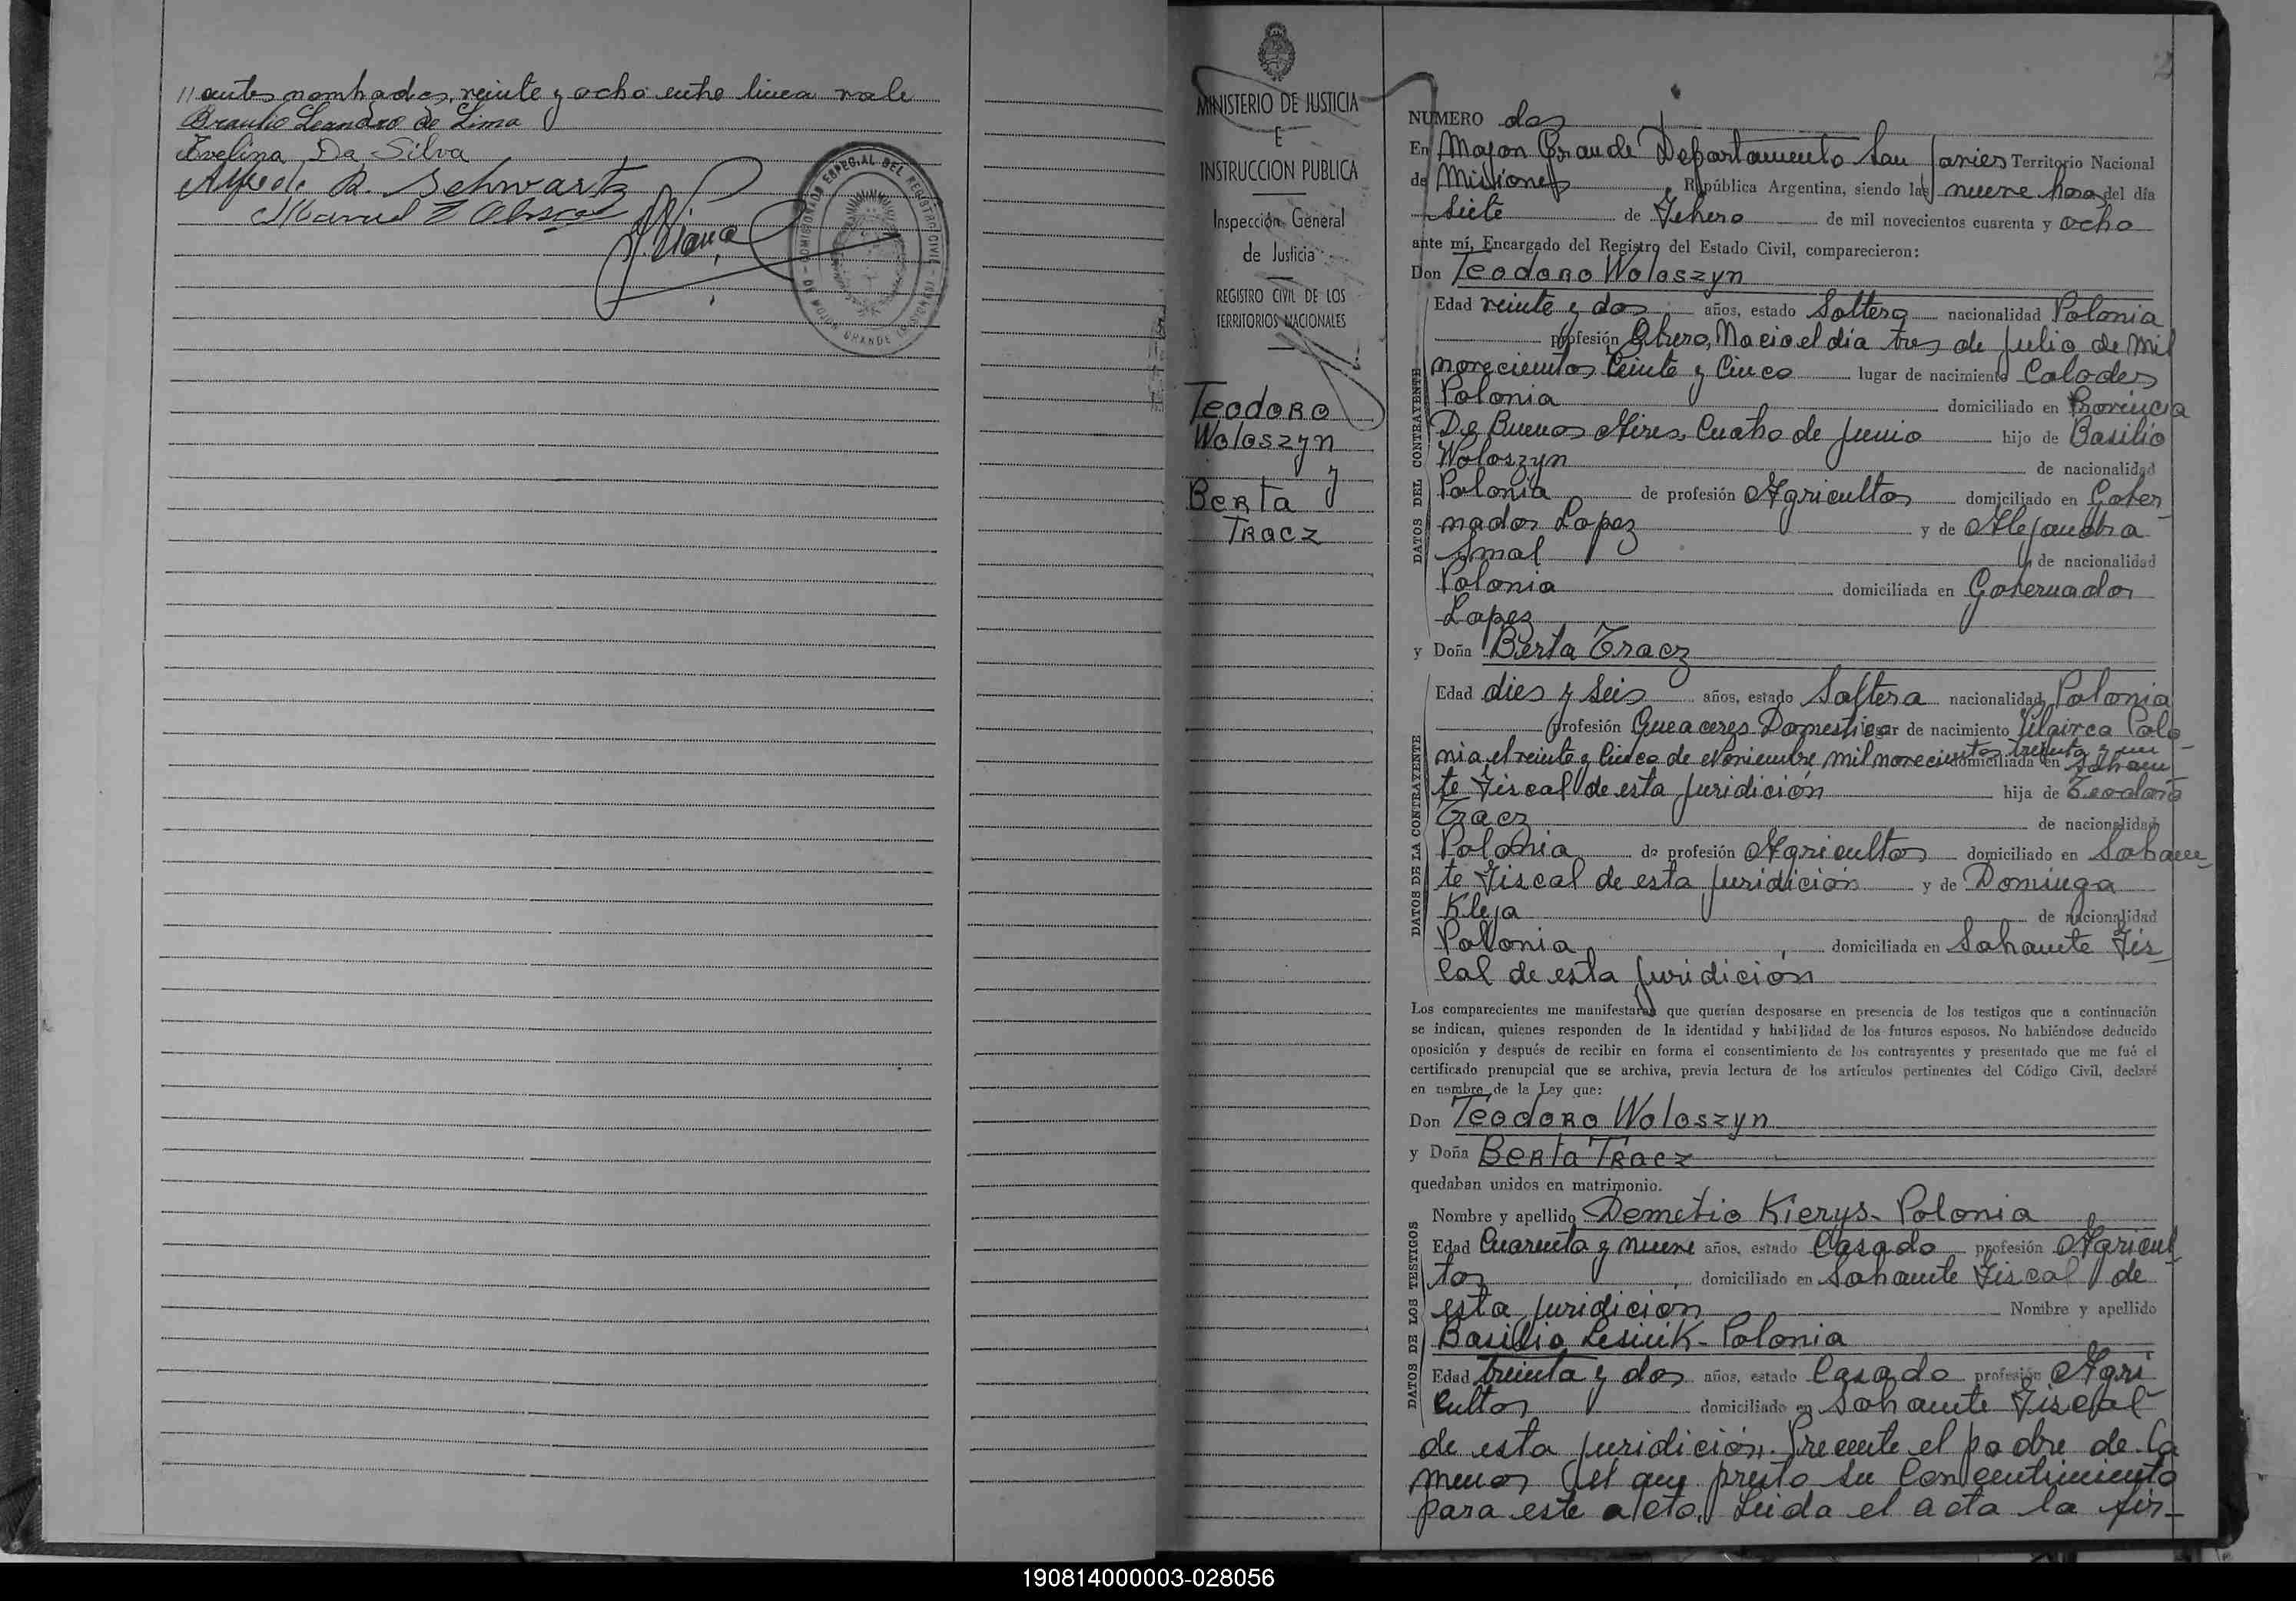 // antes nombrados, veinte y ocho entre linea vale
Braulio Leandro de Lima
Evelina Da Silva
Alfredo R. Schwartz
Manuel
COMISIONADO ESPECIAL DEL REGISTRO CIVIL
DE MOJON GRANDE
MINISTERIO DE JUSTICIA
E
INSTRUCCION PUBLICA
Inspección General
de Justicia
REGISTRO CIVIL DE LOS
TERRITORIOS NACIONALES
Teodoro
Woloszyn
y
Berta
Tracz
2
NUMERO dos
En Mojon Grande Departamento San Javier Territorio Nacional
de Misiones, República Argentina, siendo las nueve hora del día
siete de Febrero de mil novecientos cuarenta y ocho
ante mí, Encargado del Registro del Estado Civil, comparecieron:
Don Teodoro Woloszyn
DATOS DEL CONTRAYENTE
Edad veinte y dos años, estado Soltero nacionalidad Polonia
profesión Obrero, Nacio el día tres de Julio de mil
novecientos Veinte y Cinco lugar de nacimiento Colodes
Polonia domiciliado en Provincia
De Buenos Aires, Cuatro de Junio hijo de Basilio
Woloszyn de nacionalidad
Polonia de profesión Agricultor domiciliado en Gober
nador Lopez y de Alejandra
Smal de nacionalidad
Polonia domiciliada en Gobernador
Lopez
y Doña Berta Tracz
DATOS DE LA CONTRAYENTE
Edad dies y seis años, estado Soltera nacionalidad Polonia
profesión Queaceres Domestico lugar de nacimiento Polo-
nia, el veinte y Cinco de Noviembre mil novecientos treinta y un domiciliada en Sobran
te Fiscal de esta juridición hija de Teodoro
Tracz de nacionalidad
Polonia de profesión Agricultor domiciliado en Sobran-
te Fiscal de esta juridición y de Dominga
Kleja de nacionalidad
Polonia domiciliada en Sobrante Fis
cal de esta juridición
Los comparecientes me manifestaron que querían desposarse en presencia de los testigos que a continuación
se indican, quienes responden de la identidad y habilidad de los futuros esposos. No habiéndose deducido
oposición y después de recibir en forma el consentimiento de los contrayentes y presentado que me fué el
certificado prenupcial que se archiva, previa lectura de los artículos pertinentes del Código Civil, declaré
en nombre de la Ley que:
Don Teodoro Woloszyn
y Doña Berta Tracz
quedaban unidos en matrimonio.
DATOS DE LOS TESTIGOS
Nombre y apellido Demetrio Kierys- Polonia
Edad Cuarenta y nueve años, estado Casado profesión Agricul
tor domiciliado en Sobrante Fiscal de
esta juridición Nombre y apellido
Basilio Lesiuk- Polonia
Edad treinta y dos años, estado Casado profesión Agri
cultor domiciliado en Sobrante Fiscal
de esta juridición. Precente el padre de la
menor el que presto su Concentimiento
para este acto. Leida el acta la fir-
190814000003-028056